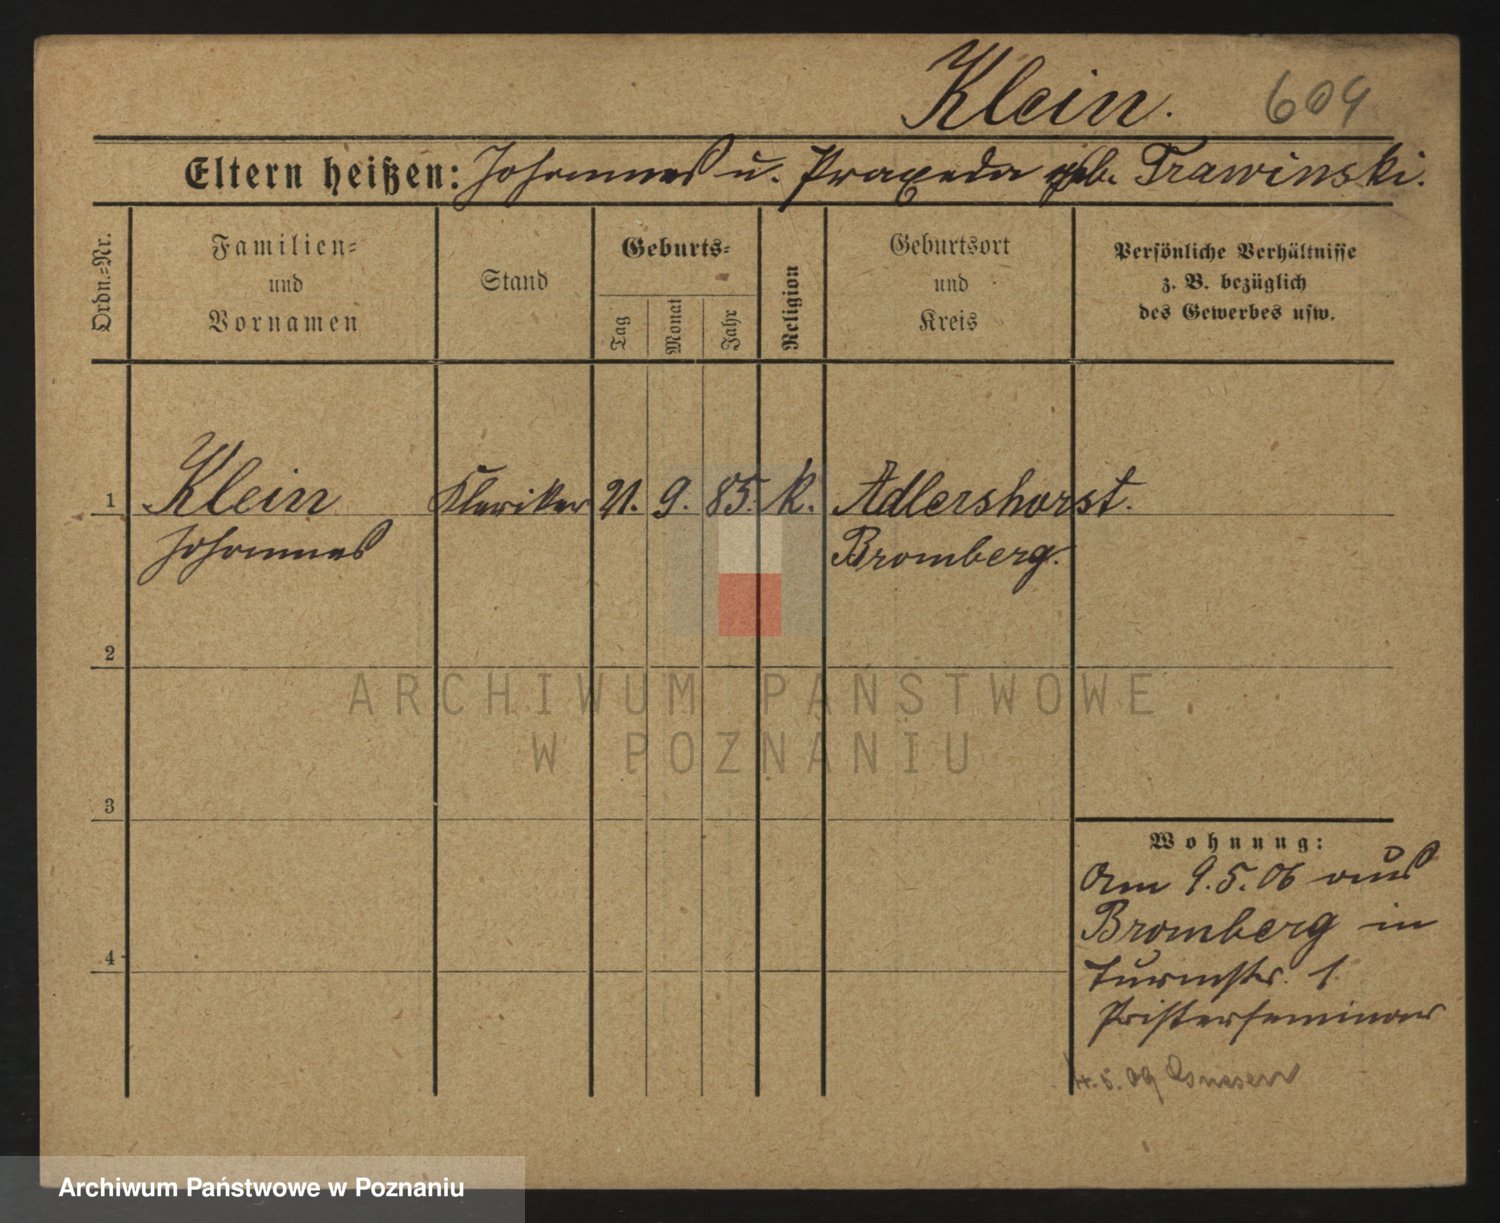 Klein. 609
Eltern heißen: Johannes u. Praxeda geb. Trawinski.
Ordn.-Nr.
Familien-
und
Vornamen
Stand
Geburts-
Tag
Monat
Jahr
Religion
Geburtsort
und
Kreis
Persönliche Verhältnisse
z. B. bezüglich
des Gewerbes usw.
1 Klein Kleriker 21. 9. 85. k. Adlershorst.
Johannes Bromberg.
2
ARCHIWUM PAŃSTWOWE
W POZNANIU
3
Wohnung:
Am 9.5.06 aus
Bromberg in
Turmstr. 1.
Pristerseminar
4
4.5.09 Gnesen
Archiwum Państwowe w Poznaniu